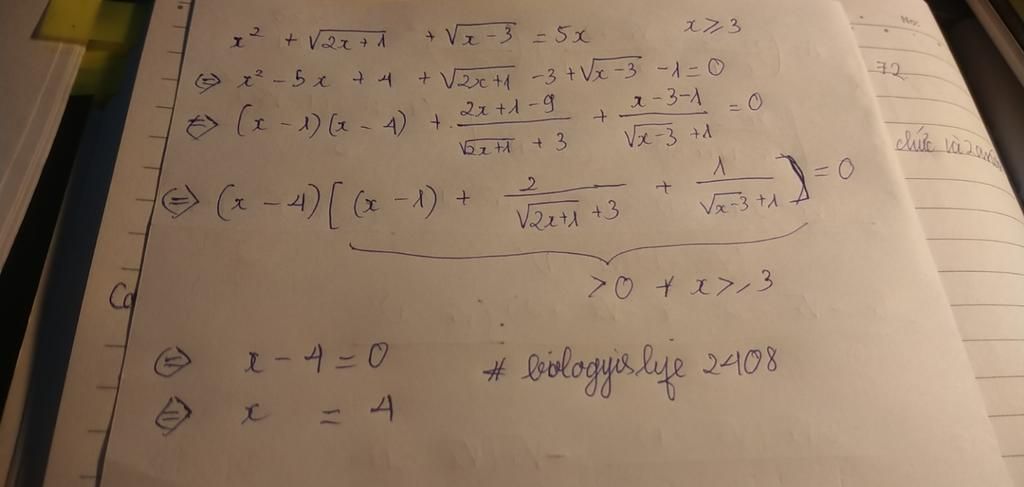 x² + √(2x+1) + √(x-3) = 5x x ≥ 3
⇔ x² - 5x + 4 + √(2x+1) - 3 + √(x-3) - 1 = 0
⇔ (x - 1)(x - 4) + (2x+1-9)/(√(2x+1) + 3) + (x-3-1)/(√(x-3) + 1) = 0
⇔ (x - 4)[(x - 1) + 2/(√(2x+1) + 3) + 1/(√(x-3) + 1)] = 0
> 0 ∀ x ≥ 3
⇔ x - 4 = 0 # biologyislife 2408
⇔ x = 4
72